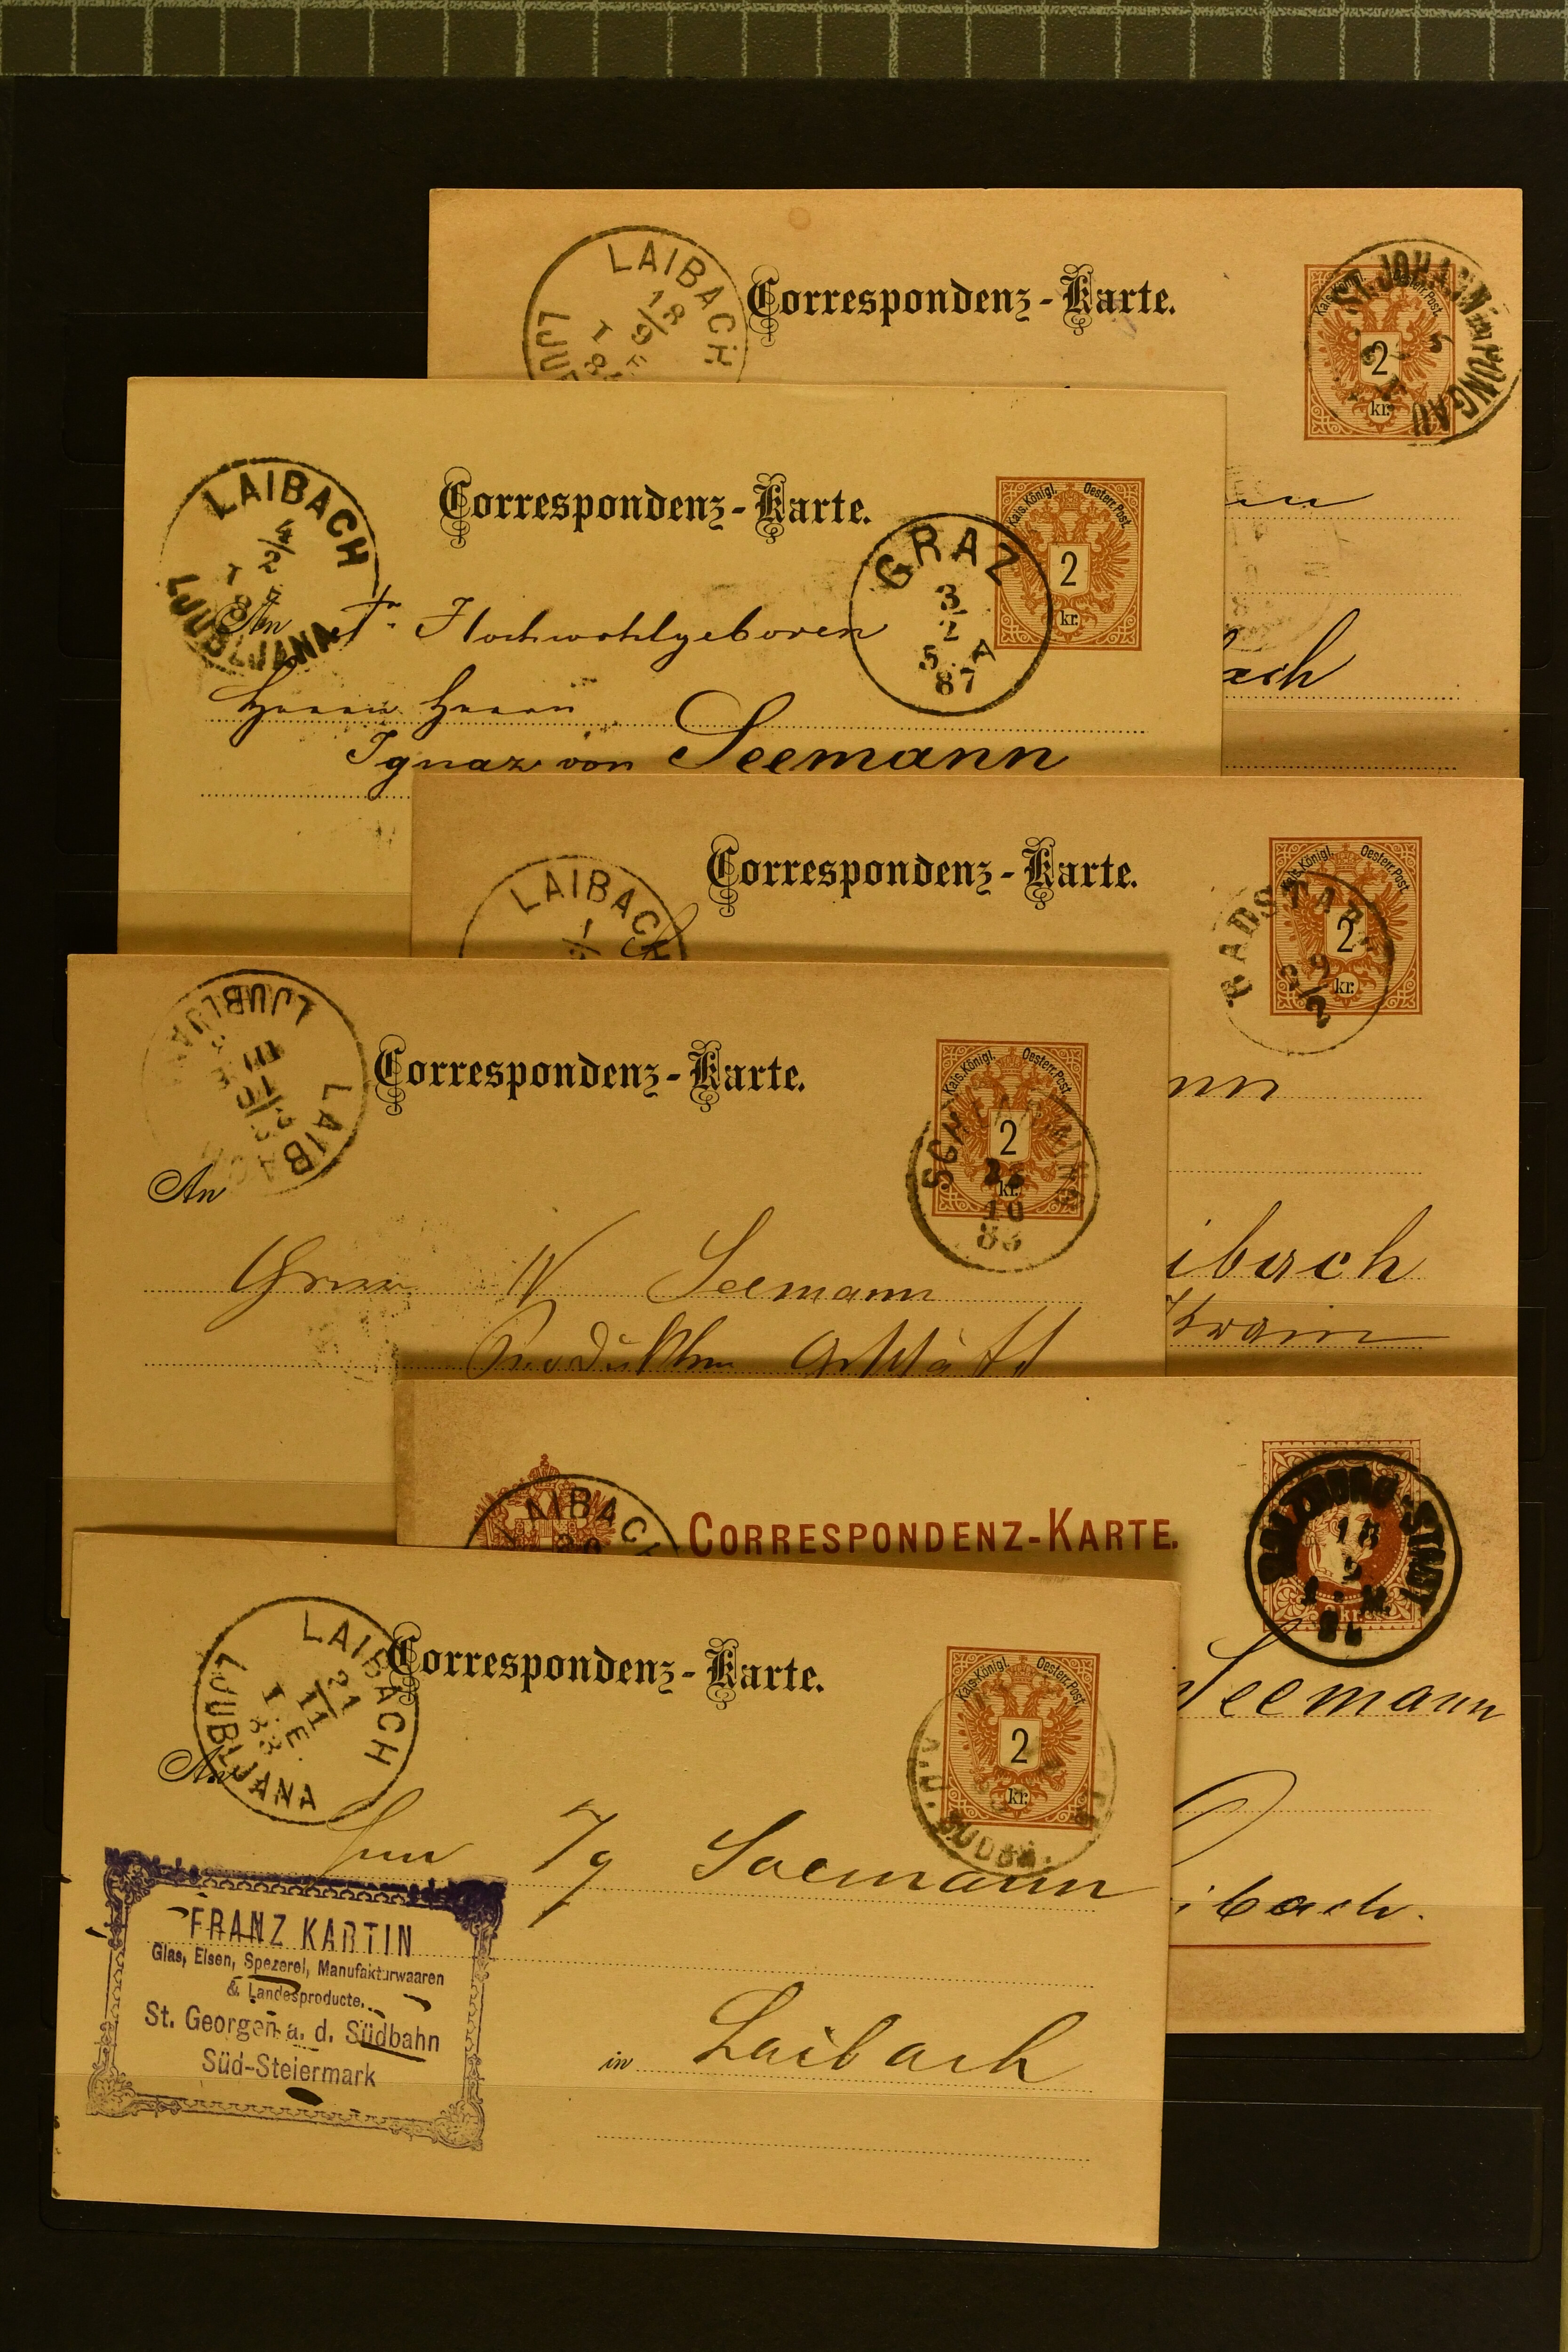 LAIBACH
18
9/
Correspondenz-Karte.
Kais. Königl. Oesterr. Post.
2
kr.
ST. JOHANN im PONGAU
LAIBACH
4/2
LJUBLJANA
Correspondenz-Karte.
Kais. Königl. Oesterr. Post.
2
kr.
GRAZ
3
2
5. A
87
An Sr. Hochwohlgeboren
Herrn Herrn
Ignaz von Seemann
ach
LAIBACH
Correspondenz-Karte.
Kais. Königl. Oesterr. Post.
2
kr.
RADSTADT
nn
ibach
Krain
LJUBLJANA
LAIBACH
Correspondenz-Karte.
Kais. Königl. Oesterr. Post.
2
kr.
10
83
An
Herrn N Seemann
LAIBACH
CORRESPONDENZ-KARTE.
SALZBURG STADT
18
2 kr.
Seemann
ibach.
LAIBACH
21
11
E.
I 83
LJUBLJANA
Correspondenz-Karte.
Kais. Königl. Oesterr. Post.
2
kr.
A.D. SÜDBH.
An
Herrn Ig Seemann
FRANZ KARTIN
Glas, Eisen, Spezerei, Manufakturwaaren
& Landesproducte.
St. Georgen a. d. Südbahn
Süd-Steiermark
in Laibach